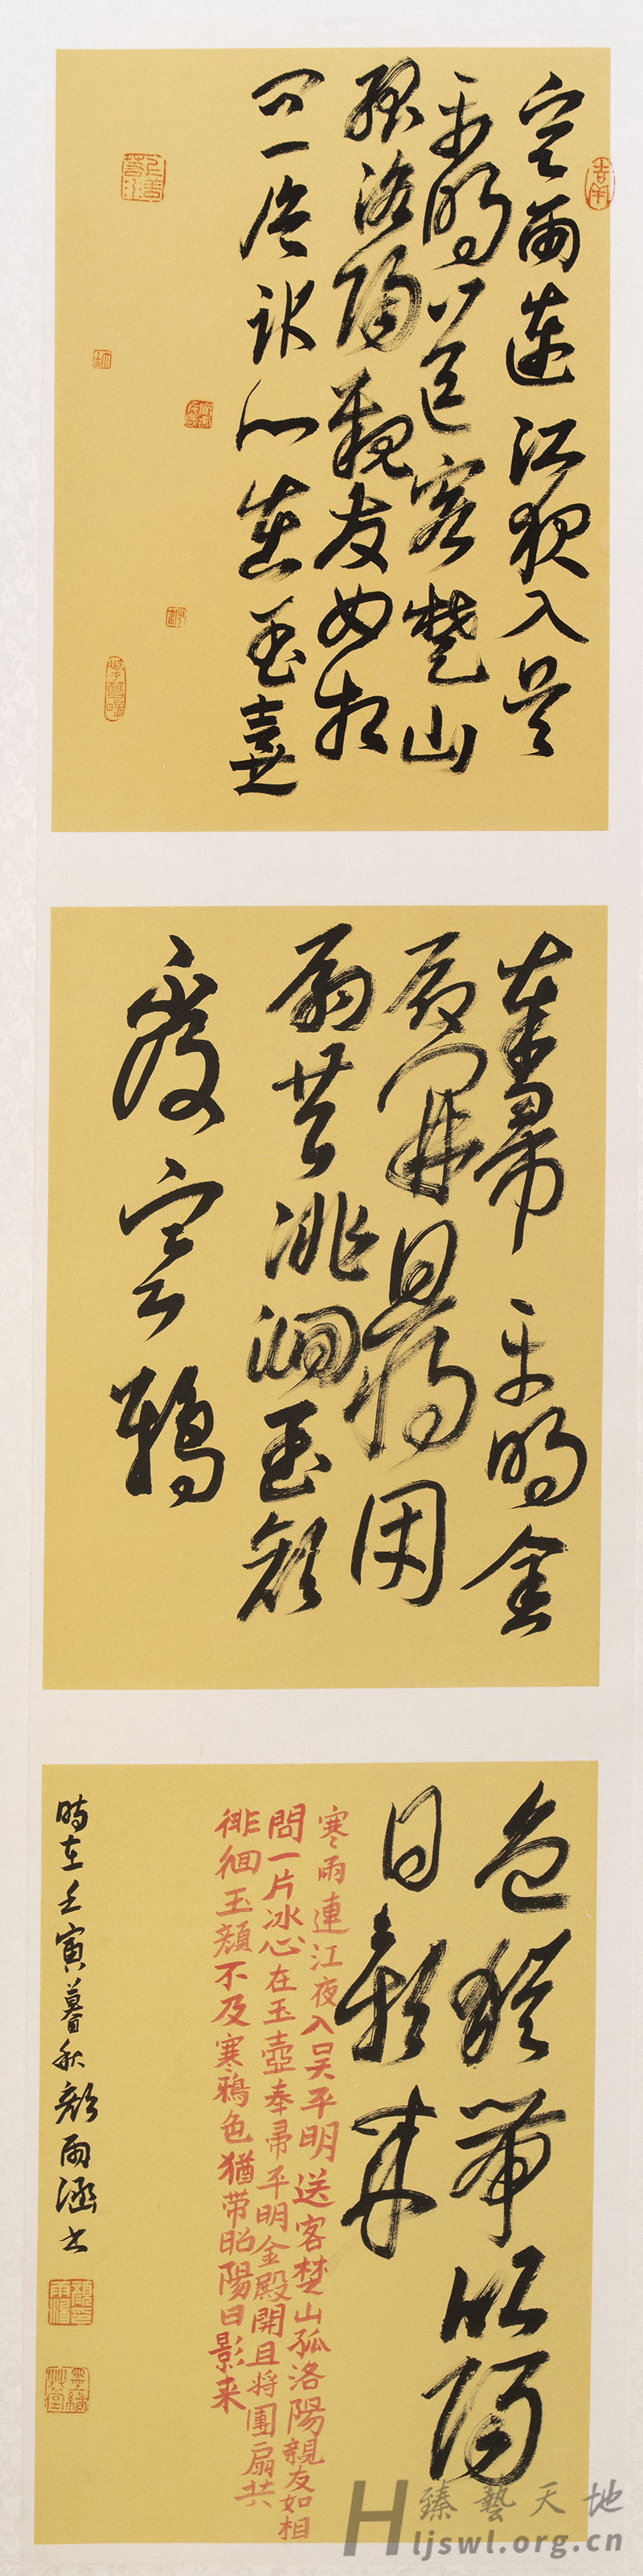 寒雨連江夜入吳
平明送客楚山
孤洛陽親友如相
問一片冰心在玉壺
奉帚平明金
殿開且將團
扇共徘徊玉顏
不及寒鴉
色猶帶昭陽
日影來
寒雨連江夜入吳平明送客楚山孤洛陽親友如相
問一片冰心在玉壺奉帚平明金殿開且将團扇共
徘徊玉顏不及寒鴉色猶带昭陽日影来
時在壬寅暮秋顏雨涵书
臻藝天地
Hljswl.org.cn